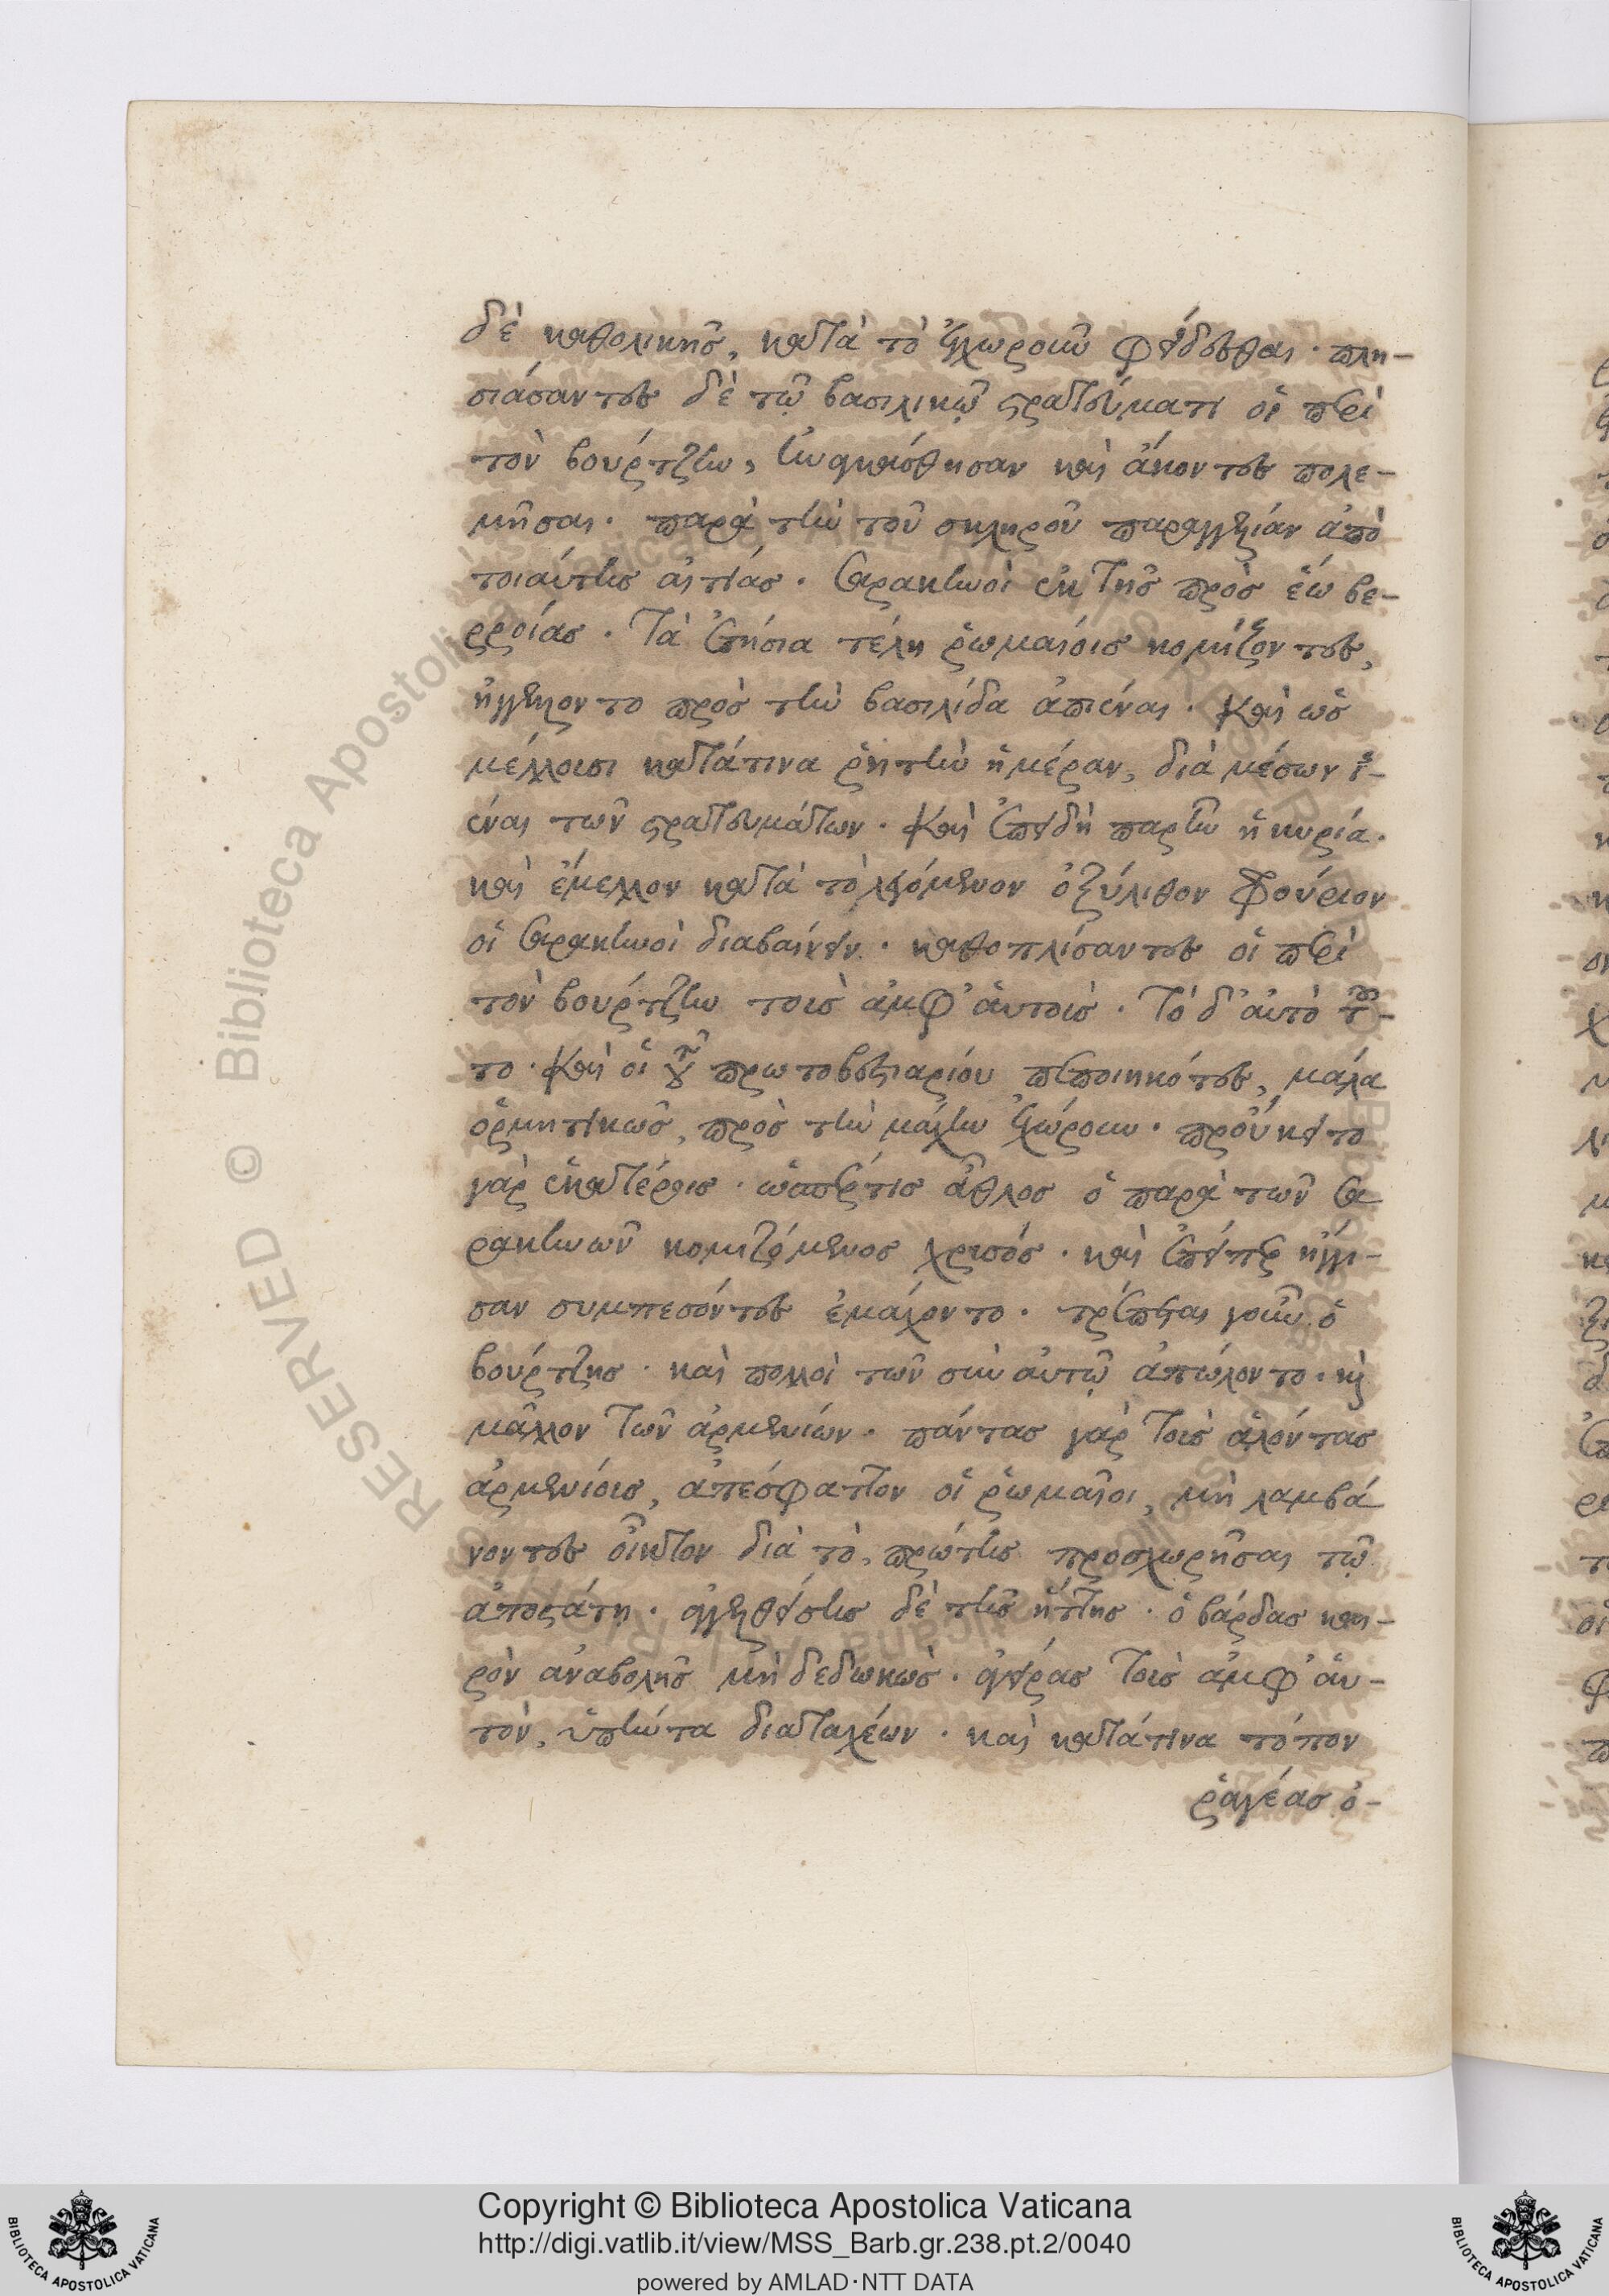 δὲ καθολικῆς, κατὰ τὸ ἐγχωροῦν φείδεσθαι · πλη-
σιάσαντες δὲ τῷ βασιλικῷ στρατεύματι οἱ περὶ
τὸν βούρτζην, ἠναγκάσθησαν καὶ ἄκοντες πολε-
μῆσαι · παρὰ τὴν τοῦ σκληροῦ παραγγελίαν ἀπὸ
τοιαύτης αἰτίας · σαρακηνοὶ ἐκ τῆς πρὸς ἕω βε-
ρροίας · Τὰ ἐτήσια τέλη ῥωμαίοις κομίζοντες,
ἠγγέλλοντο πρὸς τὴν βασιλίδα ἀπιέναι · Καὶ ὡς
μέλλουσι κατάτινα ῥητὴν ἡμέραν, διὰ μέσων ἰ-
έναι τῶν στρατευμάτων · Καὶ ἐπειδὴ παρῆν ἡ κυρία ·
καὶ ἔμελλον κατὰ τὸ λεγόμενον ὀξύλιθον φρούριον
οἱ σαρακηνοὶ διαβαίνειν · καθοπλίσαντες οἱ περὶ
τὸν βούρτζην τοὺς ἀμφ' αὐτοὺς · Τὸ δ' αὐτὸ τοῦ-
το · Καὶ οἱ τοῦ πρωτοβεστιαρίου πεποιηκότες, μάλα
ὁρμητικῶς, πρὸς τὴν μάχην ἐχώρουν · προύκειτο
γὰρ ἑκατέροις · ὥσπέρτις ἆθλος ὁ παρὰ τῶν σα
ρακηνῶν κομιζόμενος χρυσός · καὶ ἐπείπερ ἤγγι-
σαν συμπεσόντες ἐμάχοντο · τρέπεται γοῦν ὁ
βούρτζης · καὶ πολλοὶ τῶν σὺν αὐτῷ ἀπώλοντο · κ
μᾶλλον τῶν ἀρμενίων · πάντας γὰρ τοὺς ἁλόντας
ἀρμενίους, ἀπέσφαττον οἱ ῥωμαῖοι, μὴ λαμβά
νοντες οἶκτον διὰ τὸ, πρώτους προσχωρῆσαι τῷ
ἀποστάτῃ · ἀγγελθείσης δὲ τῆς ἥττης · ὁ βάρδας και-
ρὸν ἀναβολῆς μὴ δεδωκὼς · ἀγείρας τοὺς ἀμφ' αὐ-
τὸν, ὑπήντα διαταχέων · καὶ κατάτινα τόπον
ῥαγέας ὀ-
Copyright © Biblioteca Apostolica Vaticana
http://digi.vatlib.it/view/MSS_Barb.gr.238.pt.2/0040
powered by AMLAD·NTT DATA